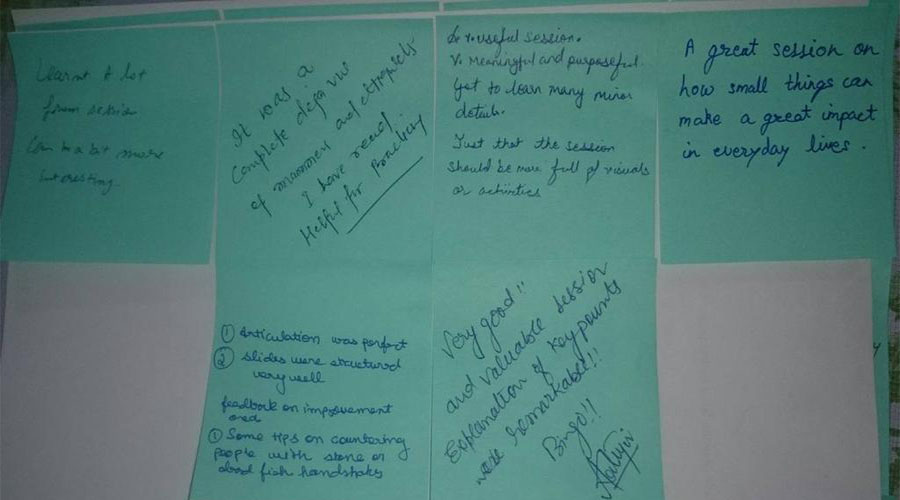 Learnt A lot
from session
Can be a bit more
interesting.
It was a
Complete deja vu
of mannerism and etiquets
I have read
Helpful for Practicing
V. useful session.
V. Meaningful and purposeful.
Get to learn many minor
details.
Just that the session
should be more full of visuals
or activities
A great session on
how small things can
make a great impact
in everyday lives.
① Articulation was perfect
② slides were structured
very well
feedback on improvement
area
① Some tips on countering
people with stone or
dead fish handshakes
Very good!!
and valuable session
Explanation of key points
were remarkable!!
Bingo!!